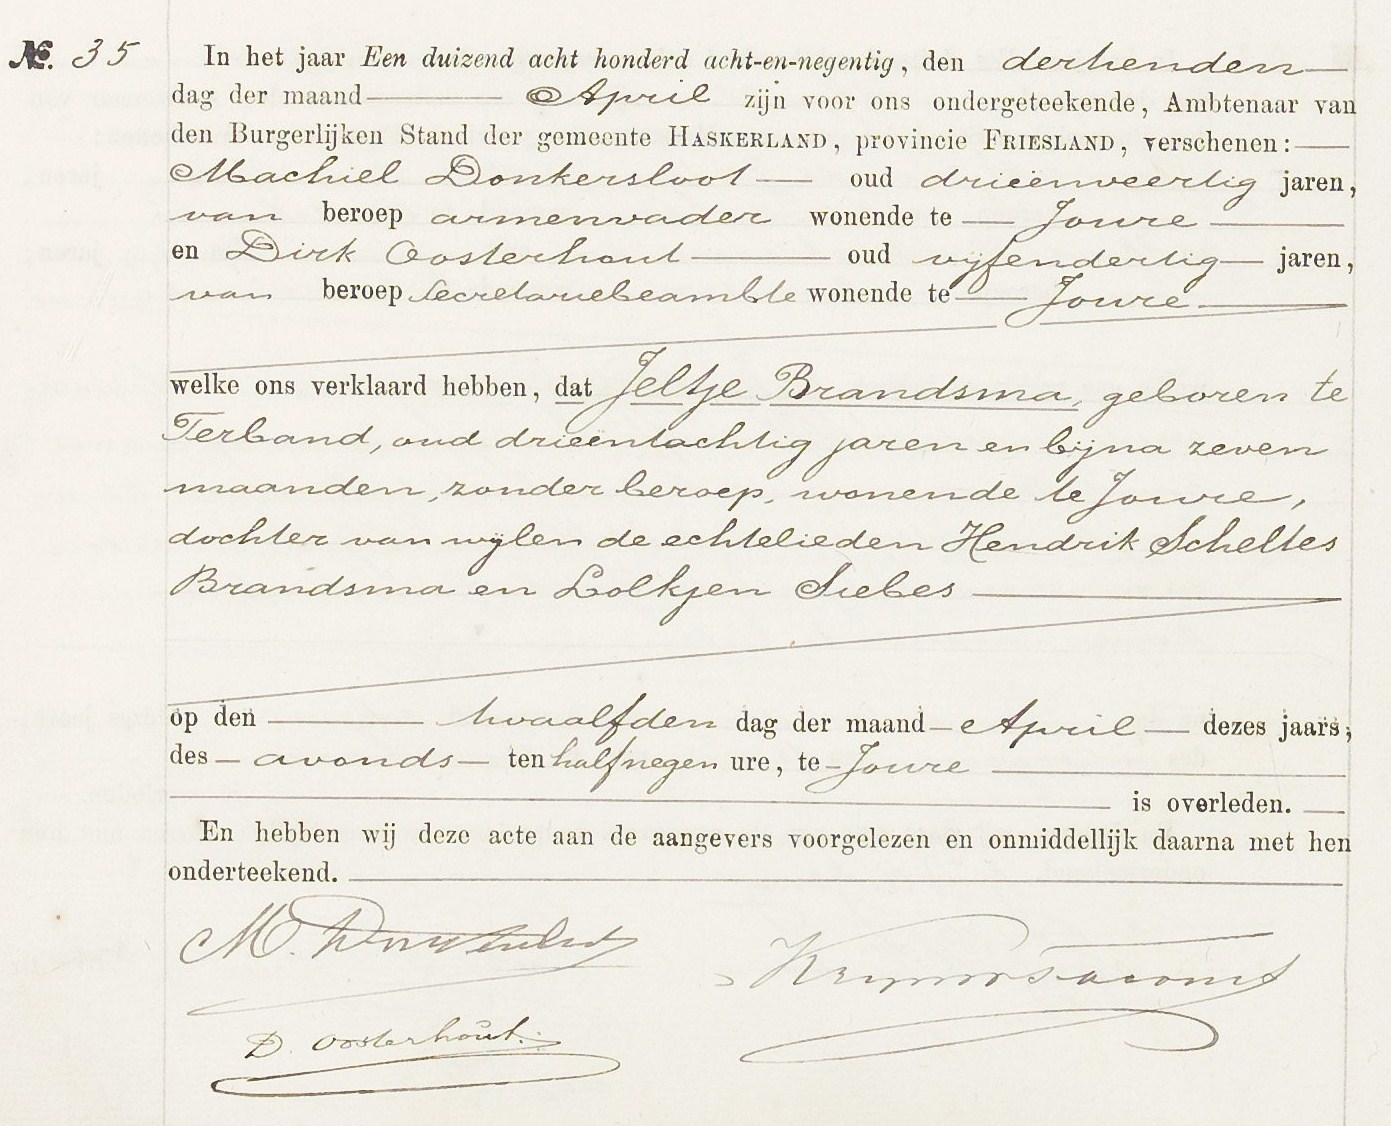 №. 35 In het jaar Een duizend acht honderd acht-en-negentig, den dertienden
dag der maand April zijn voor ons ondergeteekende, Ambtenaar van
den Burgerlijken Stand der gemeente HASKERLAND, provincie FRIESLAND, verschenen:
Machiel Donkersloot oud drieënveertig jaren,
van beroep armenvader wonende te Joure
en Dirk Oosterhout oud vijfendertig jaren,
van beroep secretariebeambte wonende te Joure
welke ons verklaard hebben, dat Jeltje Brandsma, geboren te
Terband, oud drieëntachtig jaren en bijna zeven
maanden, zonder beroep, wonende te Joure,
dochter van wijlen de echtelieden Hendrik Scheltes
Brandsma en Lolkjen Siebes
op den twaalfden dag der maand April dezes jaars,
des avonds ten half negen ure, te Joure
is overleden.
En hebben wij deze acte aan de aangevers voorgelezen en onmiddellijk daarna met hen
onderteekend.
M. Donkersloot
D. Oosterhout.